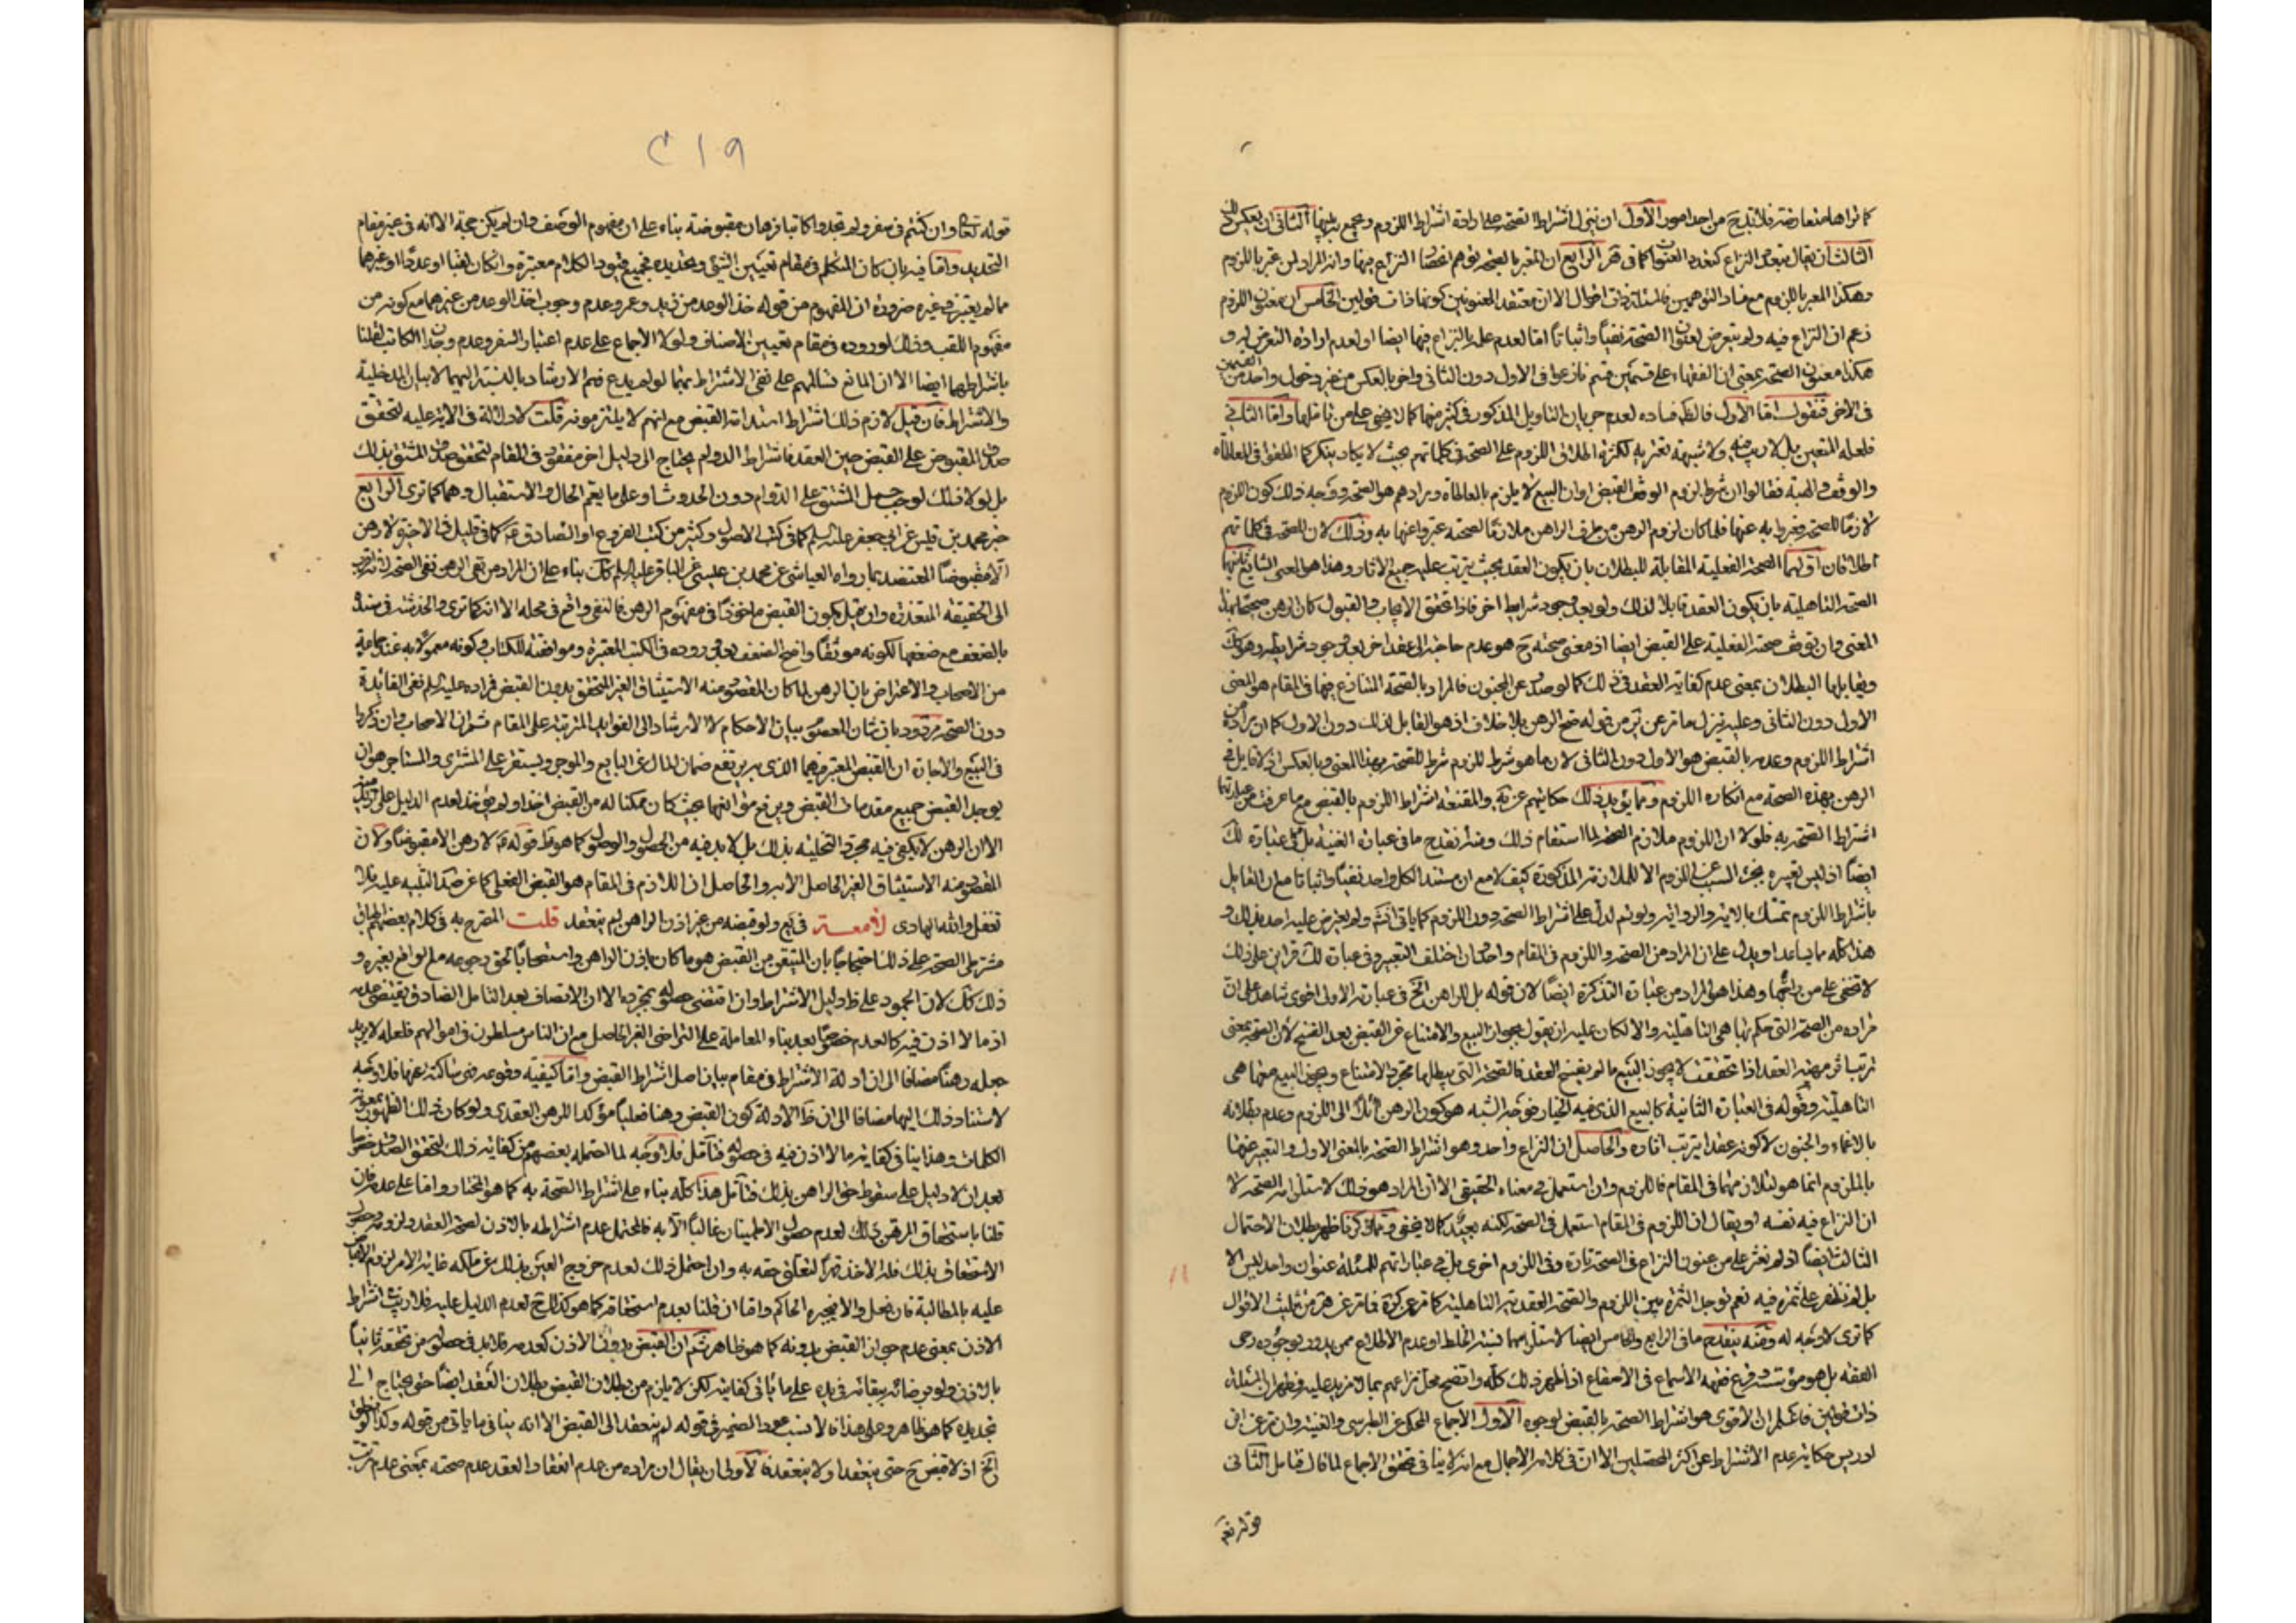 كما تراها متعارضة فلا بد ح من احد امور الأول ان ينزل اشتراط الصحة على ارادة اشتراط اللزوم ويجمع بينهما الثاني ان يعكس ذلك
الثالث ان يقال بتعدد النزاع كتعدد العنوان كما في الرابع ان المعبر بالصحة توهم انحصار النزاع فيها وان المراد لمن عبر باللزوم
وهكذا المعبر باللزوم مع فساد التوهمين فالمسئلة ذات اقوال الا ان معتقد المعنونين كونها ذات قولين الخامس ان معنون اللزوم
زعم ان النزاع فيه ولم يتعرض لعنوان الصحة نفيا واثباتا اما لعدم علمه بالنزاع فيها ايضا او لعدم ارادة التعرض له و
هكذا معنون الصحة بمعنى ان الفقهاء على قسمين قسم نازعوا في الاول دون الثاني واخر بالعكس من غير دخول واحد من القسمين
في الاخر فنقول اما الأول فالظ فساده لعدم جريان التاويل المذكور في كثير منها كما لا يخفى على من تاملها واما الثاني
فلعله المتعين بل لا ريب فيه ولا شبهة تعتريه لكثرة اطلاق اللزوم على الصحة في كلماتهم بحيث لا يكاد ينكر كما اطلقوا في المعاطاة
والوقف والهبة فقالوا ان شرط لزوم الوقف القبض او ان البيع لا يلزم بالمعاطاة ومرادهم هو الصحة ووجه ذلك كون اللزوم
لازما للصحة فعبروا به عنها فلما كان لزوم الرهن من طرف الراهن ملازما لصحته عبروا عنها به وذلك لان للصحة في كلماتهم
اطلاقان اولهما الصحة الفعلية المقابلة للبطلان بان يكون العقد بحيث يترتب عليه جميع الاثار وهذا هو المعنى الشايع ثانيهما
الصحة التاهلية بان يكون العقد قابلا لذلك ولو بعد وجود شرايط اخر فاذا تحقق الايجاب والقبول كان الرهن صحيحا بهذا
المعنى وان توقف صحته الفعلية على القبض ايضا اذ معنى صحته ح هو عدم حاجته الى عقد اخر بعد وجود شرايطه وهو كك
ويقابلها البطلان بمعنى عدم كفاية العقد في ذلك كما لو صدر عن المجنون فالمراد بالصحة المتنازع فيها في المقام هو المعنى
الاول دون الثاني وعليه ينزل ما تر عن ير من قوله صح الرهن بلا خلاف اذ هو القابل لذلك دون الاول كما ان مراده من
اشتراط اللزوم وعدمه بالقبض هو الاول دون الثاني لان ما هو شرط للزوم شرط للصحة بهذا المعنى وبالعكس اذ لا قايل بصحة
الرهن بهذه الصحة مع انكاره اللزوم ومما يؤيد ذلك حكايتهم عن ية والمقنعة اشتراط اللزوم بالقبض مع ما عرفت من عبارتها
اشتراط الصحة به فلولا ان اللزوم ملازم للصحة لما استقام ذلك ومنه ينقدح ما في عبارة الغنية بل في عبارة لك
ايضا اذ ليس تعبيره بجزء السبب عن اللزوم الا للملازمة المذكورة كيف لا مع ان مستند الكل واحد نفيا واثباتا مع ان القايل
باشتراط اللزوم تمسك بالاية والرواية ولو تم لدل على اشتراط الصحة دون اللزوم كما ياتي انش ولم يعترض عليه احد بذلك و
هذا كله مما يساعد او يدل على ان المراد من الصحة واللزوم في المقام واحد وان اختلف التعبير وفي عبارة لك قراين على ذلك
لا تخفى على من راجعها وهذا هو المراد من عبارة التذكرة ايضا لان قوله بل للراهن الخ في عبارته الاولى اقوى شاهد على ان
مراده من الصحة التي حكم بها هي التاهلية والا لكان عليه ان يقول بجواز البيع والامتناع عن القبض بعد الفسخ لان الصحة بمعنى
ترتب اثر مهنة العقد اذا تحققت لا يجوز البيع ما لم يفسخ العقد فالصحة التي يبطلها مجرد الامتناع ويجوز البيع معها هي
التاهلية وقوله في العبارة الثانية كالبيع الذي فيه الخيار فوجه الشبه هو كون الرهن ائلا الى اللزوم وعدم بطلانه
بالاغماء والجنون لا كونه عقدا يترتب اثاره والحاصل ان النزاع واحد وهو اشتراط الصحة بالمعنى الاول والتعبير عنها
باللزوم انما هو لتلازمهما في المقام فاللزوم وان استعمل في معناه الحقيقي الا ان المراد هو ذلك لاستلزامه الصحة لا
ان النزاع فيه نفسه او يقال ان اللزوم في المقام استعمل في الصحة لكنه بعيد كما لا يخفى ومما ذكرنا ظهر بطلان الاحتمال
الثالث ايضا اذ لم نعثر على من عنون النزاع في الصحة تارة وفي اللزوم اخرى بل في عباراتهم للمسئلة عنوان واحد ليس الا
بل لم نظفر على ثمرة فيه نعم توجد الثمرة بين اللزوم والصحة العقدية التاهلية كما تر عن كرة فما تر عن هر من تثليث الاقوال
كما ترى لا وجه له ومنه ينقدح ما في الرابع والخامس ايضا لاستلزامهما نسبة الخلط او عدم الاطلاع ممن يدور بوجوده رحى
الفقه بل هو مؤسسه وقرع فقهه الاسماع في الاصقاع اذ اظهر ذلك كله واتضح محل نزاعهم بما لا مزيد عليه فظهر ان المسئلة
ذات قولين فاعلم ان الاقوى هو اشتراط الصحة بالقبض لوجوه الأول الاجماع المحكي عن الطبرسي والغنية وان تر عن ابن
ادريس حكاية عدم الاشتراط عن اكثر المحصلين الا ان في كلامه الاجمال مع انه لا ينافي تحقق الاجماع لما قال فتامل الثاني
قوله تعم
٢١٩
قوله تعالى وان كنتم في سفر ولم تجدوا كاتبا فرهان مقبوضة بناء على ان مفهوم الوصف وان لم يكن حجة الا انه في غير مقام
التحديد واما فيه بان كان المتكلم في مقام تعيين الشئ وتحديده فجميع قيود الكلام معتبرة وان كان لقبا او عددا او غيرهما
مما لم يعتبر في غيره ضرورة ان المفهوم من قوله خذ الوعد من زيد وعمرو عدم وجوب اخذ الوعد من غيرهما مع كونه من
مفهوم اللقب وذلك لوروده في مقام تعيين الاصناف ولولا الاجماع على عدم اعتبار السفر وعدم وجدان الكاتب لقلنا
باشتراطهما ايضا الا ان المانع تسالمهم على نفي الاشتراط بهما لو لم يدع فهم الارشاد بالنسبة اليهما لا بيان المدخلية
والاشتراط فان قيل لازم ذلك اشتراط استدامة القبض مع انهم لا يلتزمونه قلت لا دلالة في الاية عليه لتحقق
صدق المقبوض على القبض حين العقد فاشتراط الدوام يحتاج الى دليل اخر مفقود في المقام لتحقق صدق المشتق بذلك
بل لولا ذلك لوجب حمل المشتق على الدوام دون الحدوث او على ما يعم الحال والاستقبال وهما كما ترى الرابع
خبر محمد بن قيس عن ابي جعفر عليه السلم كما في كتب الاصول وكثير من كتب الفروع او الصادق ع كما في قليل من الاخير لا رهن
الا مقبوضا المعتضد بما رواه العياشي عن محمد بن عيسى عن الباقر عليه السلم كك بناء على ان المراد من نفي الرهن نفي الصحة لانه اقرب
الى الحقيقة المتعذرة وان قيل بكون القبض ماخوذا في مفهوم الرهن فالنفي واقع في محله الا انه كما ترى والخدشة في سنده
بالضعف مع ضعفها لكونه موثقا واضح الضعف بعد وروده في الكتب المعتبرة وموافقته للكتاب وكونه معمولا به عند جماعة
من الاصحاب والاعتراض بان الرهن لما كان المقصود منه الاستيثاق الغير المتحقق بدون القبض فمراده عليه السلم نفي الفائدة
دون الصحة مردود بان شان المعصوم بيان الاحكام لا الارشاد الى الفوايد المترتبة على المقام ثم ان الاصحاب وان ذكروا
في البيع والاجارة ان القبض المعتبر فيهما الذي به يرتفع ضمان المال عن البايع والموجر ويستقر على المشتري والمستاجر هو ان
يوجد القبض جميع مقدمات القبض ويرفع موانعها بحيث كان ممكنا له من القبض اخذ او لم يؤخذ لعدم الدليل على ازيد منه
الا ان الرهن لا يكفي فيه مجرد التخلية بذلك بل لا بد فيه من الحصول والوصول كما هو ظ قوله ع لا رهن الا مقبوضا ولان
المقصود منه الاستيثاق الغير الحاصل الا به والحاصل ان اللازم في المقام هو القبض الفعلي كما عرضك التنبيه عليه فلا
تغفل والله الهادي لامعة في يع ولو قبضه من غير اذن الراهن لم ينعقد قلت المصرح به في كلام بعضهم اطباق
مشترطي الصحة على ذلك احتجاجا بان المتيقن من القبض هو ما كان باذن الراهن واستصحابا لحق رجوعه مع لو اقبضه بغيره و
ذلك كك لان الجمود على ظ دليل الاشتراط وان اقتضى حصوله بمجرده الا ان الانصاف بعد التامل الصادق يقتضي عدمه
اذ ما لا اذن فيه كالعدم خصوصا بعد بناء المعاملة على التراضي الغير الحاصل مع ان الناس مسلطون في اموالهم فلعله لا يريد
جعله رهنا مضافا الى ان ادلة الاشتراط في مقام بيان اصل اشتراط القبض واما كيفية وقوعه فهي ساكتة عنها فلا وجه
لاستناد ذلك اليها مضافا الى ان ظ الادلة كون القبض رهنا فعليا مؤكدا للرهن العقدي ولو كان ذلك الظهور بمعونة
الكلمات وهذا ينافي كفاية ما لا اذن فيه في حصوله فتامل فلا وجه لما احتمله بعضهم من كفاية ذلك لتحقق الصدق خصوصا
بعد ان لا دليل على سقوط حق الراهن بذلك فتامل هذا كله بناء على اشتراط الصحة به كما هو المختار واما على عدمه فان
قلنا باستحقاق المرتهن ذلك لعدم حصول الاطمينان غالبا الا به فالمحتمل عدم اشتراطه بالاذن لصحة العقد ولزومه وحصول
الاستحقاق بذلك فله الاخذ قهرا لتعلق حقه به وان احتمل ذلك لعدم خروج العين بذلك عن ملكه غاية الامر لزوم الاقباض
عليه بالمطالبة فان فعل والا فيجبره الحاكم واما ان قلنا بعدم استحقاقه كما هو كذلك ح لعدم الدليل عليه فلا ريب في اشتراط
الاذن بمعنى عدم جواز القبض بدونه كما هو ظاهر ثم ان القبض بدون الاذن كعدمه فلا بد في حصوله من تحققه ثانيا
بالاذن ولو برضائه ببقائه في يده على ما ياتي كفايته لكن لا يلزم من بطلان القبض بطلان العقد ايضا حتى يحتاج الى
تجديده كما هو ظاهر وعلى هذا فالانسب عود الضمير في قوله لم ينعقد الى القبض الا انه ينافي ما ياتي من قوله وكذا لو نطق
الخ اذ لا قبض ح حتى ينعقد او لا ينعقد فالاولى ان يقال ان مراده من عدم انعقاد العقد عدم صحته بمعنى عدم ترتب